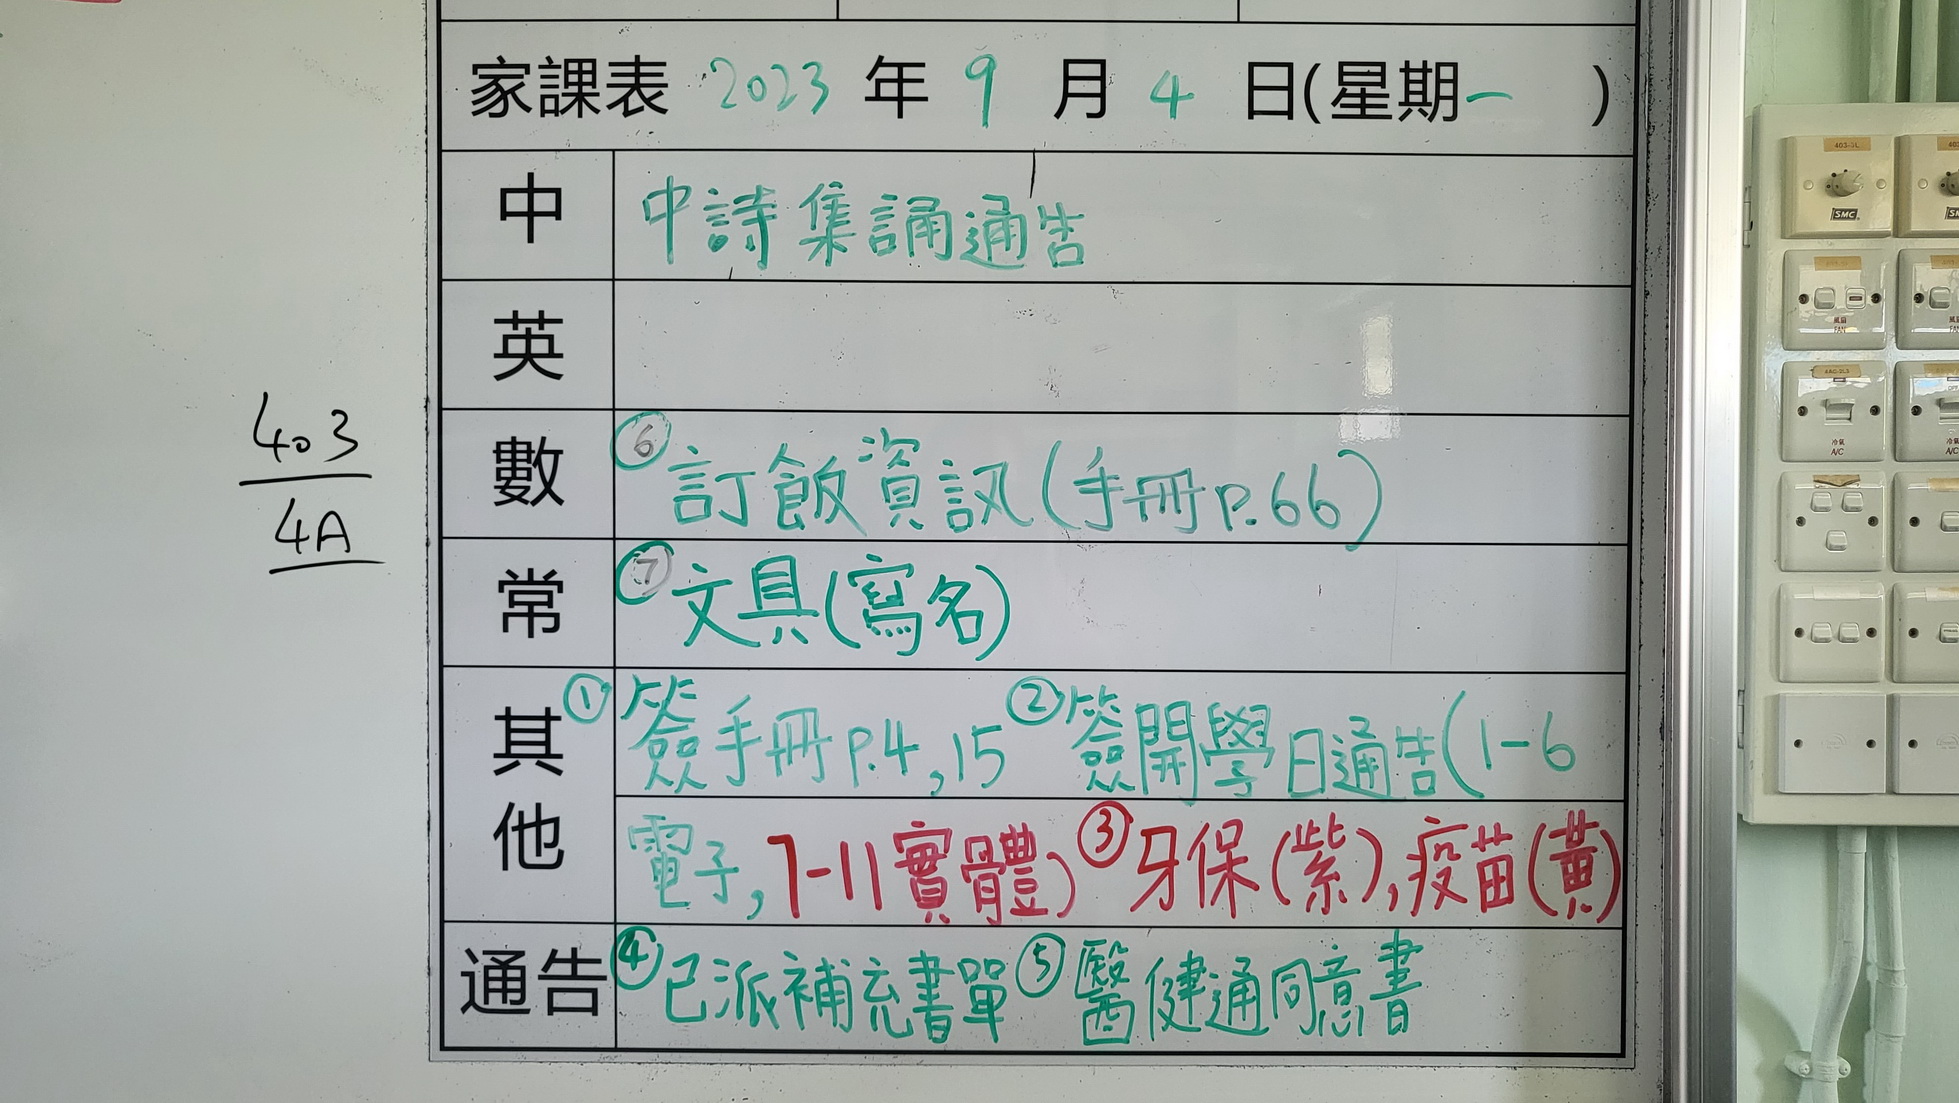 家課表 2023 年 9 月 4 日(星期一 )
中 中詩集誦通告
英
403
4A
數 ⑥訂飯資訊(手冊P.66)
常 ⑦文具(寫名)
其他 ①簽手冊P.4,15 ②簽開學日通告(1-6
電子,7-11實體) ③牙保(紫),疫苗(黃)
通告 ④已派補充書單 ⑤醫健通同意書
403-3L
SMC
風扇
FAN
冷氣
A/C